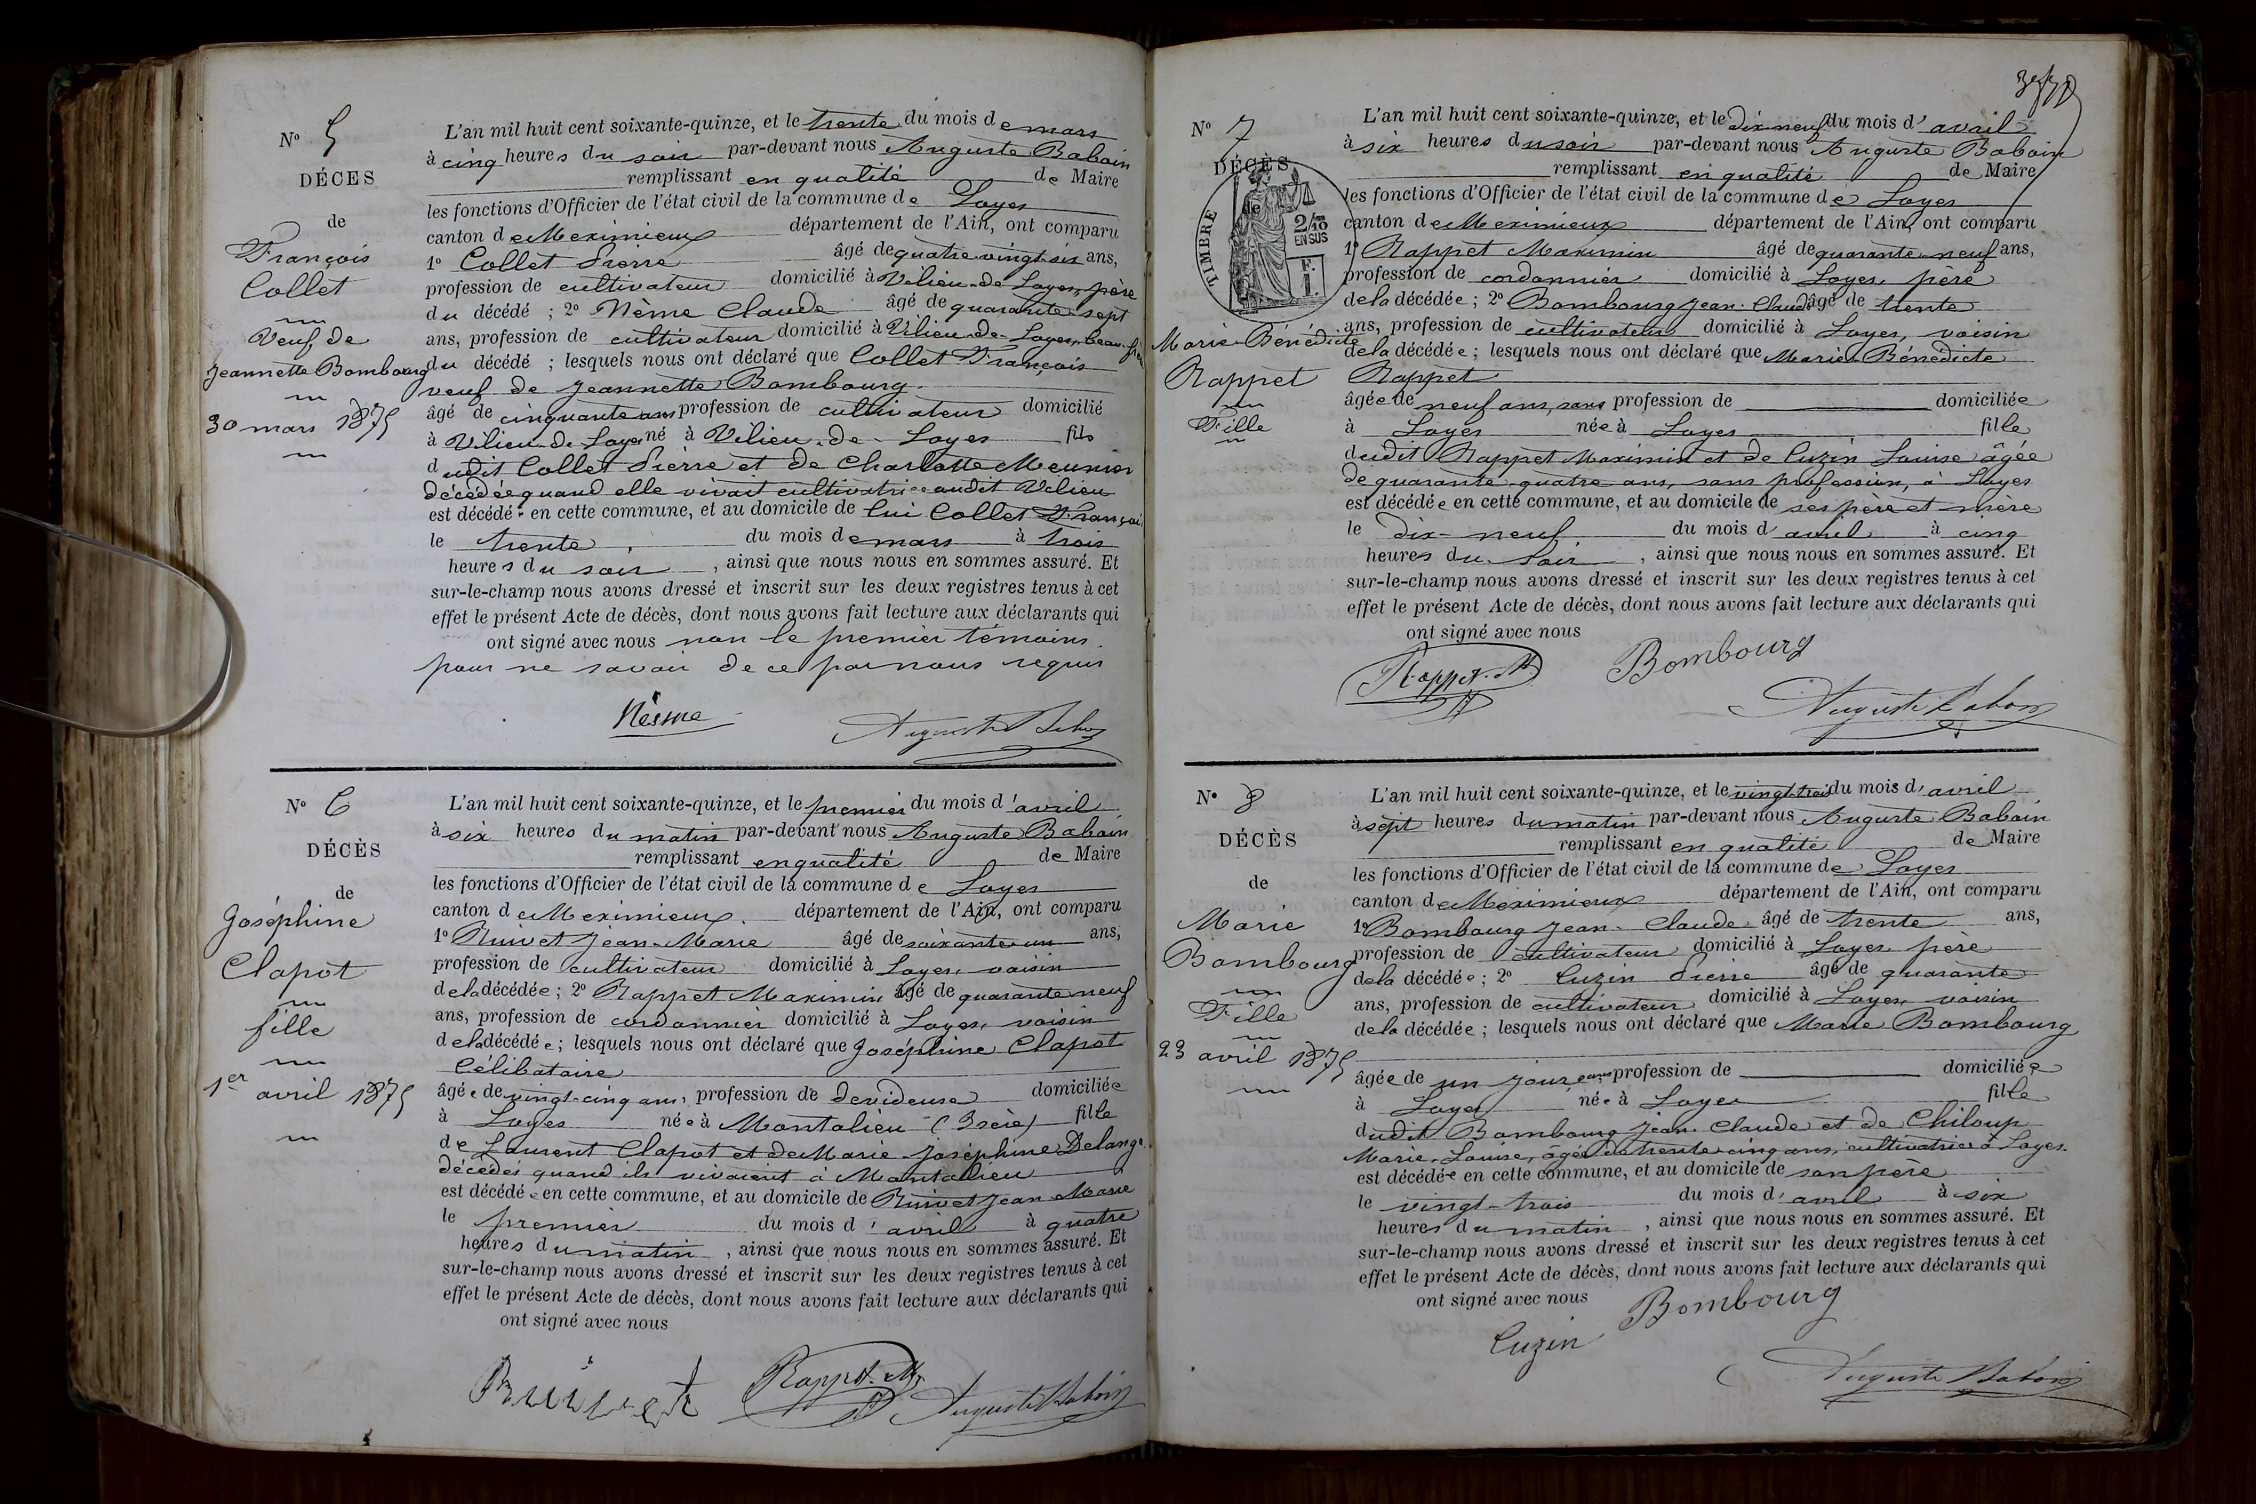 Nº 5
DÉCES
de
François
Collet
Veuf de
Jeannette Bombourg
30 mars 1875
L'an mil huit cent soixante-quinze, et le trente du mois de mars
à cinq heures du soir par-devant nous Auguste Baboin
remplissant en qualité de Maire
les fonctions d'Officier de l'état civil de la commune de Loyes
canton de Meximieux département de l'Ain, ont comparu
1º Collet Pierre âgé de quatre-vingt-six ans,
profession de cultivateur domicilié à Vilieu-de-Loyes, père
du décédé ; 2º Nème Claude âgé de quarante-sept
ans, profession de cultivateur domicilié à Vilieu-de-Loyes, beau-frère
du décédé ; lesquels nous ont déclaré que Collet François
veuf de Jeannette Bombourg.
âgé de cinquante ans profession de cultivateur domicilié
à Vilieu-de-Loyes né à Vilieu-de-Loyes fils
dudit Collet Pierre et de Charlotte Meunier
décédée quand elle vivait cultivatrice audit Vilieu
est décédé en cette commune, et au domicile de lui Collet François
le trente du mois de mars à trois
heures du soir, ainsi que nous nous en sommes assuré. Et
sur-le-champ nous avons dressé et inscrit sur les deux registres tenus à cet
effet le présent Acte de décès, dont nous avons fait lecture aux déclarants qui
ont signé avec nous non le premier témoins.
pour ne savoir de ce par nous requis
Nèsme
Auguste Baboin
Nº 6
DÉCÈS
de
Joséphine
Clapot
fille
1er avril 1875
L'an mil huit cent soixante-quinze, et le premier du mois d'avril
à six heures du matin par-devant nous Auguste Baboin
remplissant en qualité de Maire
les fonctions d'Officier de l'état civil de la commune de Loyes
canton de Meximieux. département de l'Ain, ont comparu
1º Ruivet Jean-Marie âgé de soixante-un ans,
profession de cultivateur domicilié à Loyes, voisin
de la décédée ; 2º Rappet Maximin âgé de quarante neuf
ans, profession de cordonnier domicilié à Loyes, voisin
de la décédée ; lesquels nous ont déclaré que Joséphine Clapot
Célibataire
âgée de vingt-cinq ans, profession de devideuse domiciliée
à Loyes née à Montalieu (Isère) fille
de Laurent Clapot et de Marie-Joséphine Delange
décédés quand ils vivaient à Montalieu
est décédée en cette commune, et au domicile de Ruivet Jean-Marie
le premier du mois d'avril à quatre
heures du matin, ainsi que nous nous en sommes assuré. Et
sur-le-champ nous avons dressé et inscrit sur les deux registres tenus à cet
effet le présent Acte de décès, dont nous avons fait lecture aux déclarants qui
ont signé avec nous
Ruivet
Rappet. M
Auguste Baboin
Nº 7
DÉCÈS
de
TIMBRE
2/10
EN SUS
F.
1.
Marie-Bénédicte
Rappet
Fille
L'an mil huit cent soixante-quinze, et le dix-neuf du mois d'avril
à six heures du soir par-devant nous Auguste Baboin
remplissant en qualité de Maire
les fonctions d'Officier de l'état civil de la commune de Loyes
canton de Meximieux département de l'Ain, ont comparu
1º Rappet Maximin âgé de quarante-neuf ans,
profession de cordonnier domicilié à Loyes, père
de la décédée ; 2º Bombourg Jean-Claude âgé de trente
ans, profession de cultivateur domicilié à Loyes, voisin
de la décédée ; lesquels nous ont déclaré que Marie-Bénédicte
Rappet
âgée de neuf ans, sans profession de domiciliée
à Loyes née à Loyes fille
dudit Rappet Maximin et de Cuzin Louise âgée
de quarante-quatre ans, sans profession, à Loyes
est décédée en cette commune, et au domicile de ses père et mère
le dix-neuf du mois d'avril à cinq
heures du soir, ainsi que nous nous en sommes assuré. Et
sur-le-champ nous avons dressé et inscrit sur les deux registres tenus à cet
effet le présent Acte de décès, dont nous avons fait lecture aux déclarants qui
ont signé avec nous
Rappet. M
Bombourg
Auguste Baboin
Nº 8
DÉCÈS
de
Marie
Bombourg
Fille
23 avril 1875
L'an mil huit cent soixante-quinze, et le vingt-trois du mois d'avril
à sept heures du matin par-devant nous Auguste Baboin
remplissant en qualité de Maire
les fonctions d'Officier de l'état civil de la commune de Loyes
canton de Meximieux département de l'Ain, ont comparu
1º Bombourg Jean-Claude âgé de trente ans,
profession de cultivateur domicilié à Loyes père
de la décédée ; 2º Cuzin Pierre âgé de quarante
ans, profession de cultivateur domicilié à Loyes, voisin
de la décédée ; lesquels nous ont déclaré que Marie Bombourg
âgée de un jour, sans profession de domiciliée
à Loyes née à Loyes fille
dudit Bombourg Jean-Claude et de Chiloup
Marie-Louise, âgée de trente-cinq ans, cultivatrice à Loyes.
est décédée en cette commune, et au domicile de son père
le vingt-trois du mois d'avril à six
heures du matin, ainsi que nous nous en sommes assuré. Et
sur-le-champ nous avons dressé et inscrit sur les deux registres tenus à cet
effet le présent Acte de décès, dont nous avons fait lecture aux déclarants qui
ont signé avec nous
Bombourg
Cuzin
Auguste Baboin